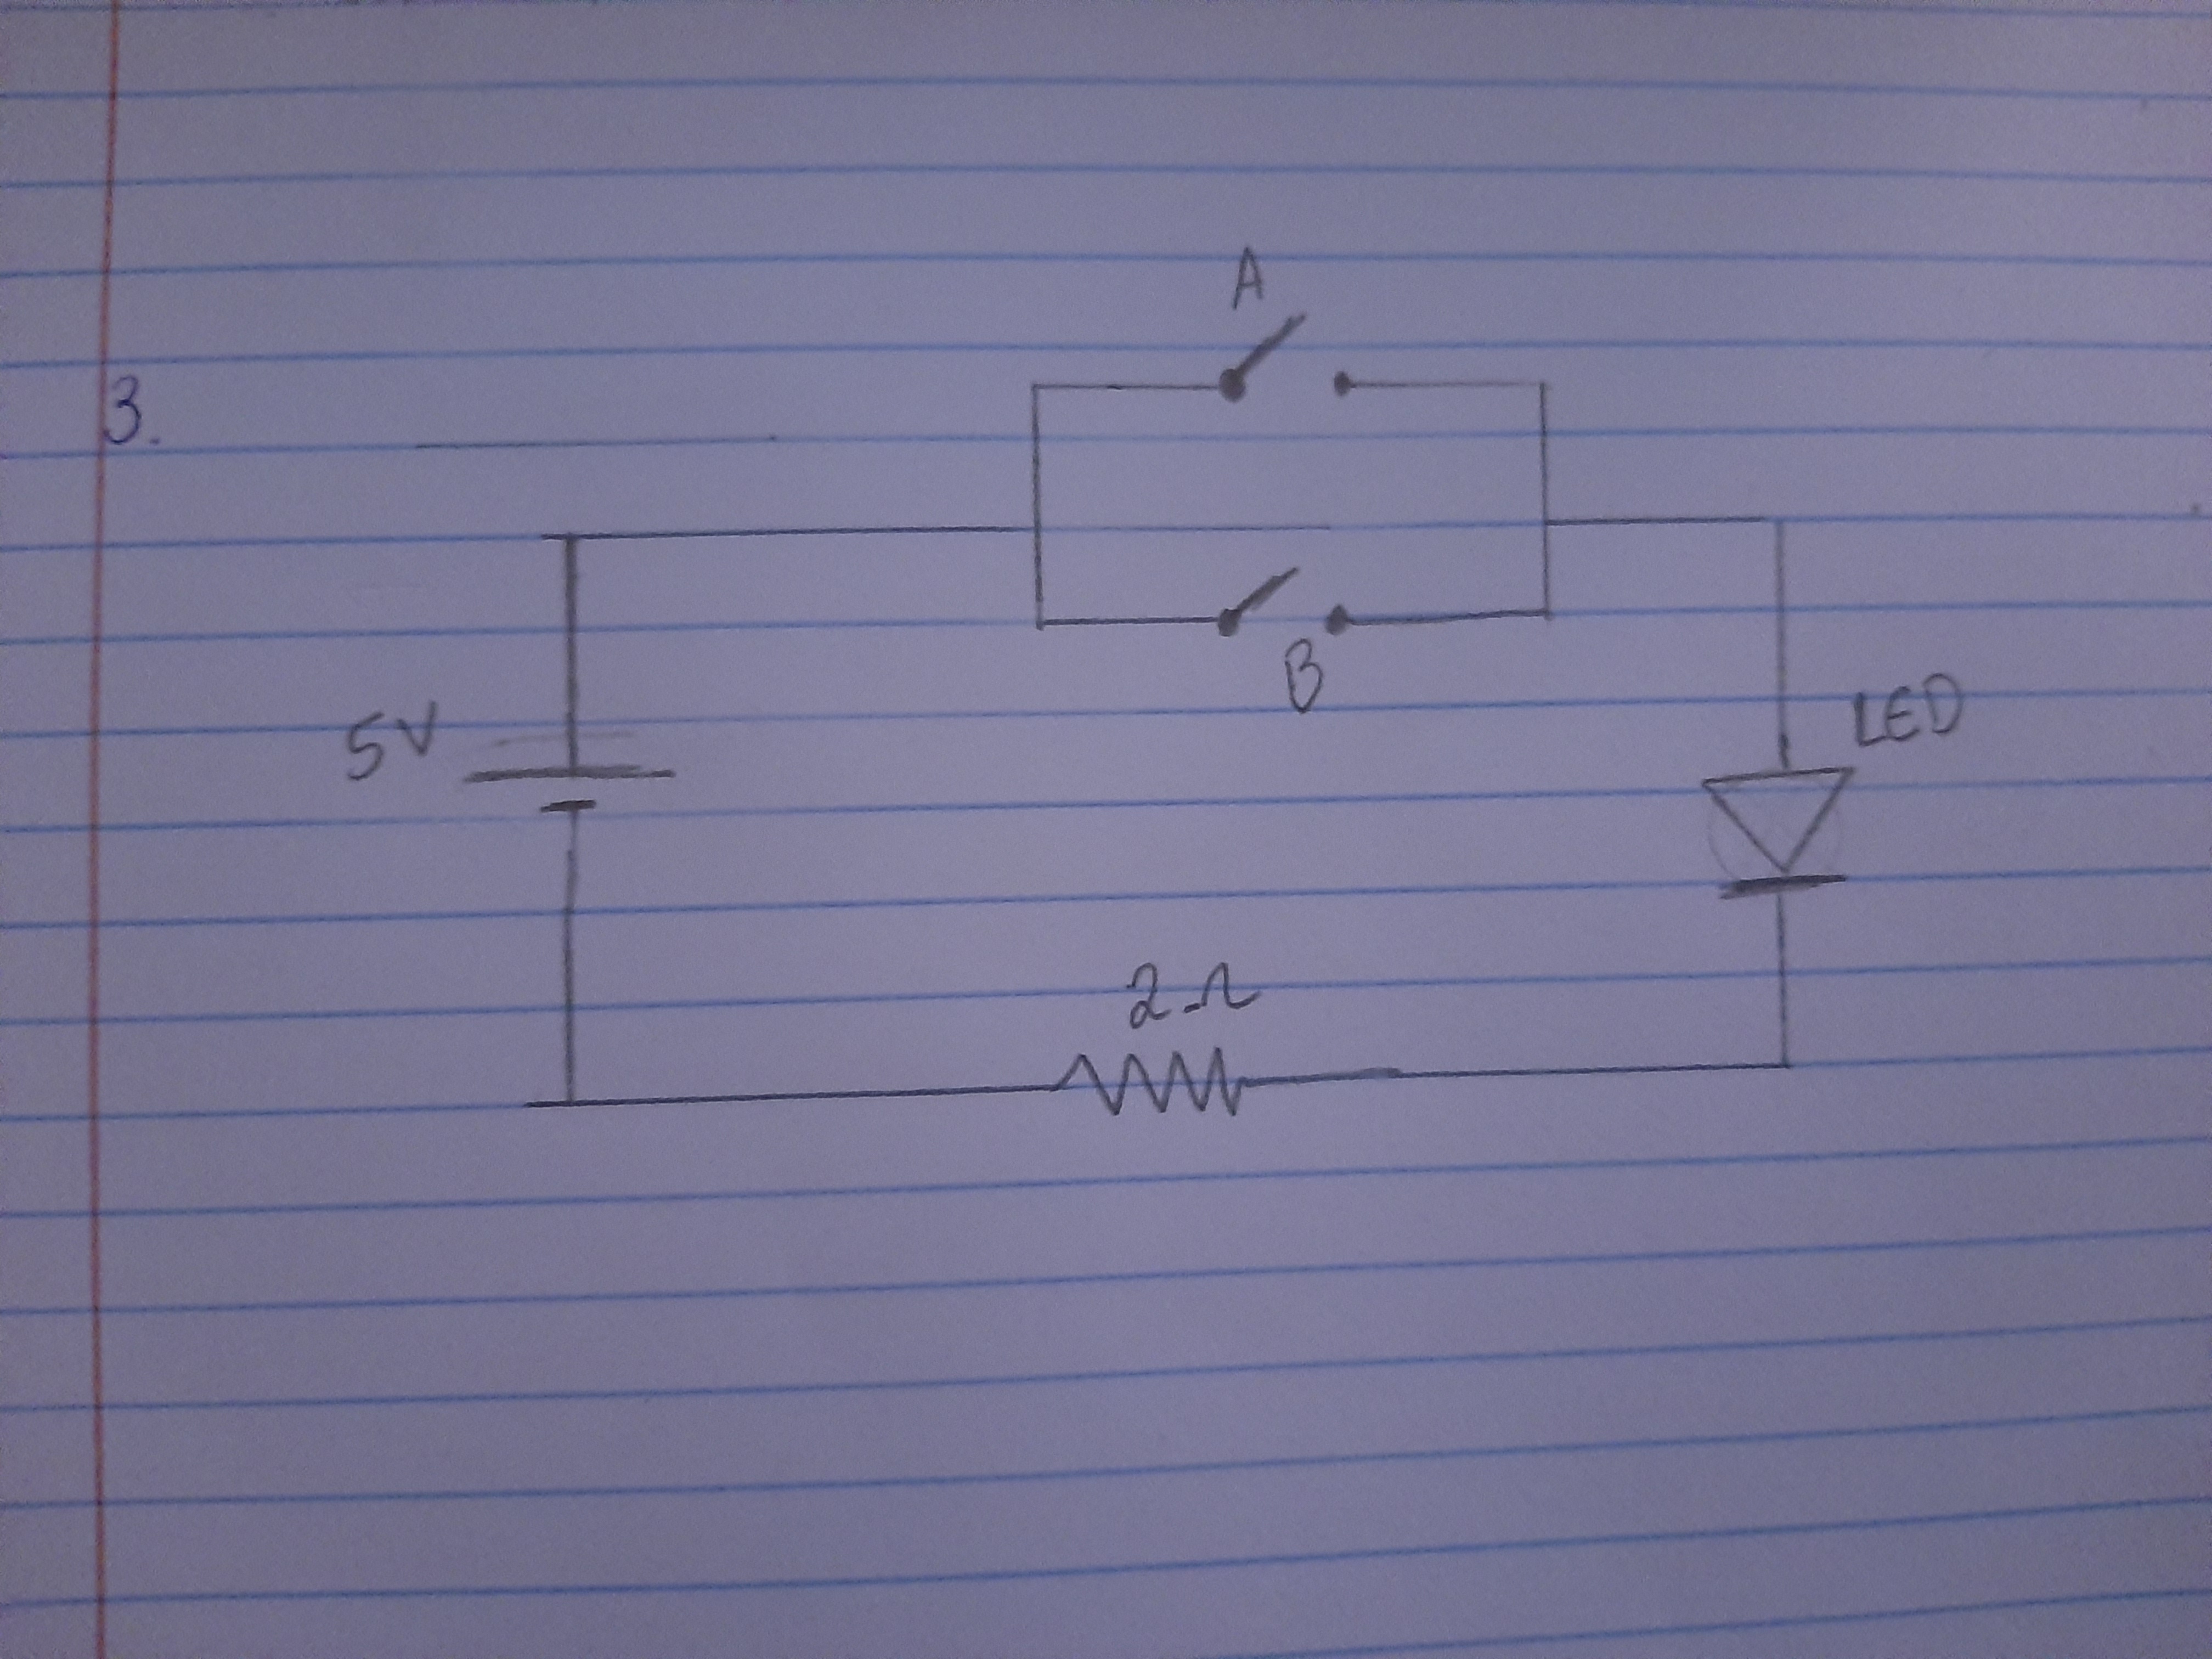 A
3.
B
5V
LED
2Ω